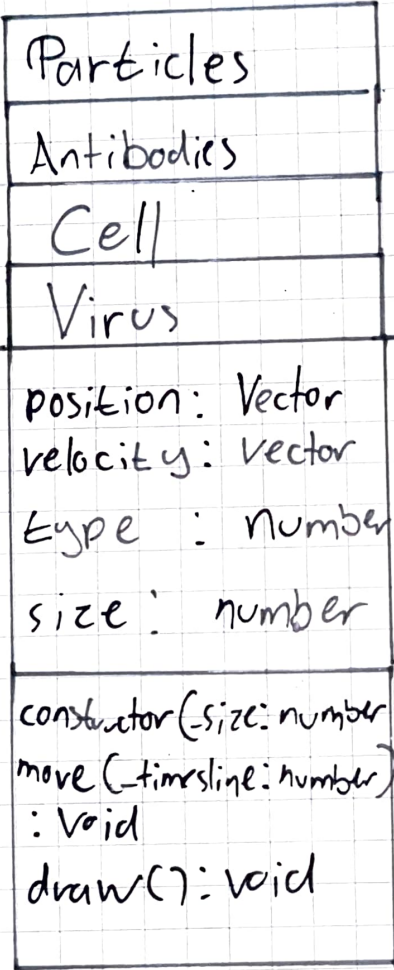 Particles
Antibodies
Cell
Virus
position: Vector
velocity: vector
type : number
size: number
constructor(_size: number
move(_timesline: number)
: void
draw(): void